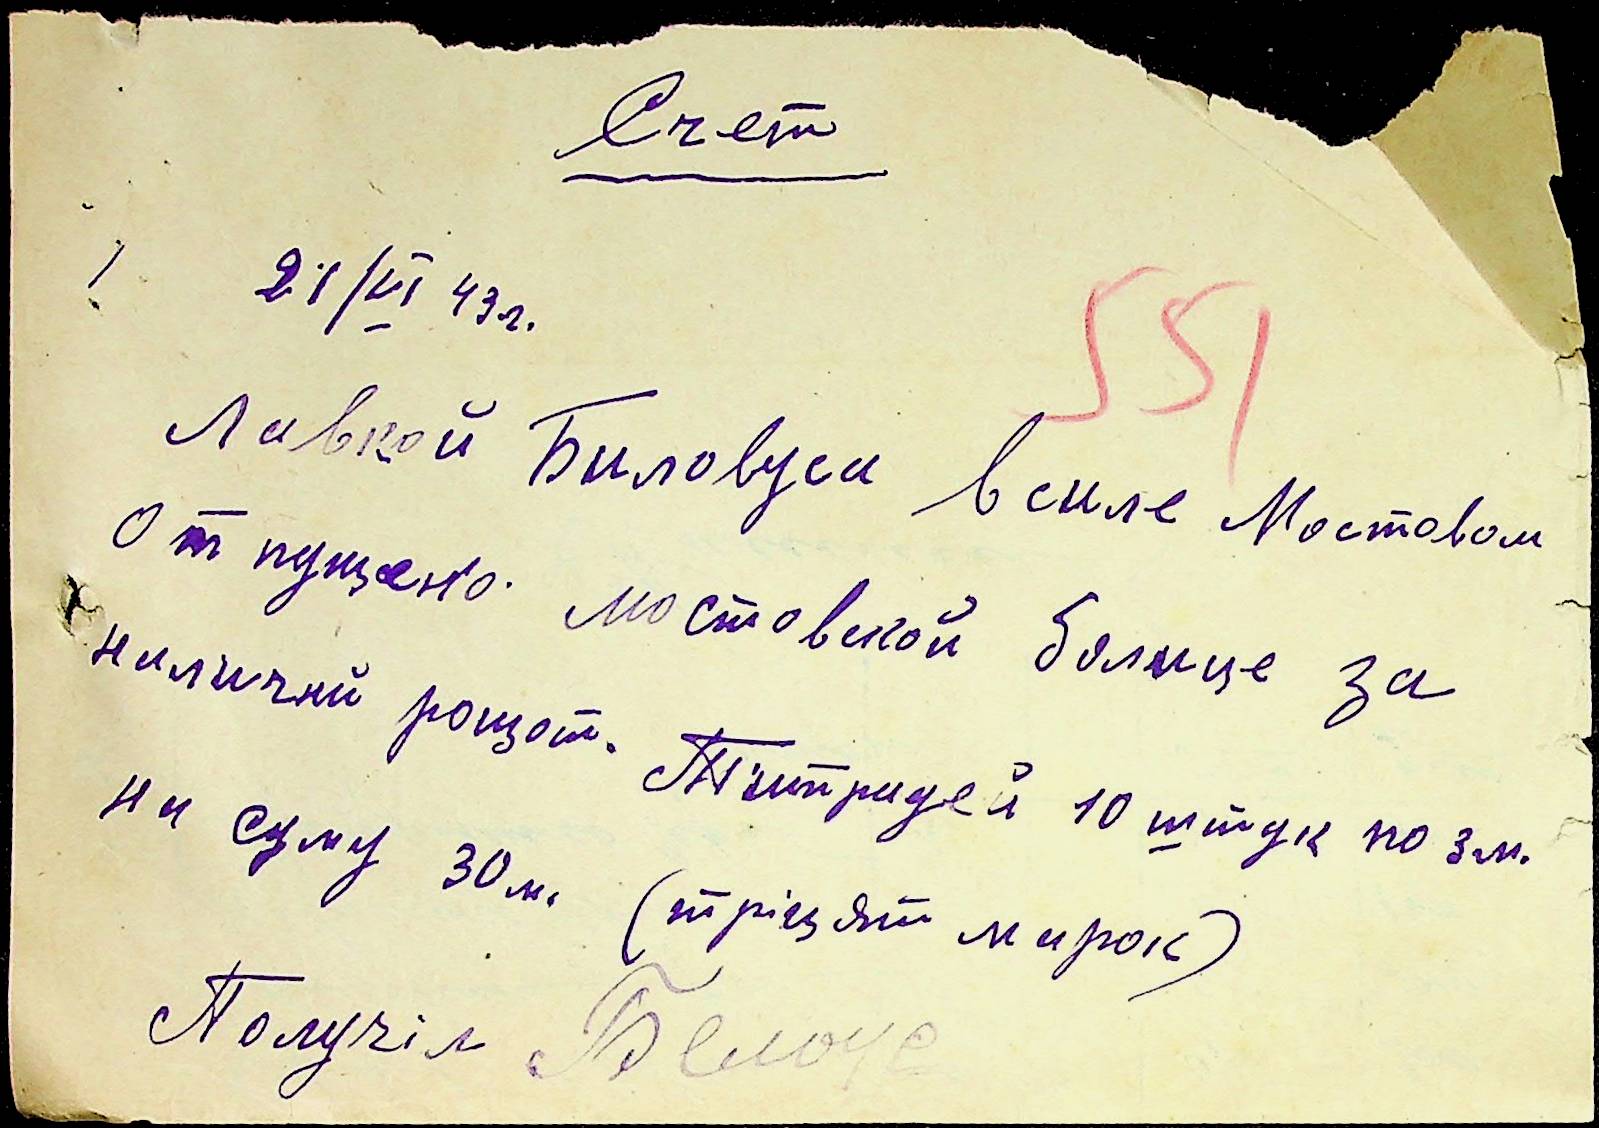 Счет
21/VI 43г.
551
Лавкой Биловуса в силе Мостовом
Отпущено мостовской болнце за
наличнй рощот. Титрадей 10 штук по 3 м.
на суму 30 м. (тріцят марок)
Получіл Белоус